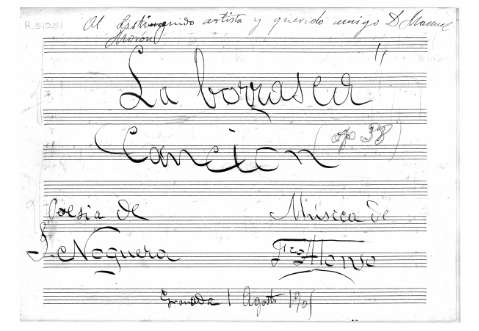 Al distinguido artista y querido amigo D. Manuel
La borrasca"
Canción (op 38)
Poesia de Música de
S. Noguera Fco Alonso
Granada 1 Agosto 1905